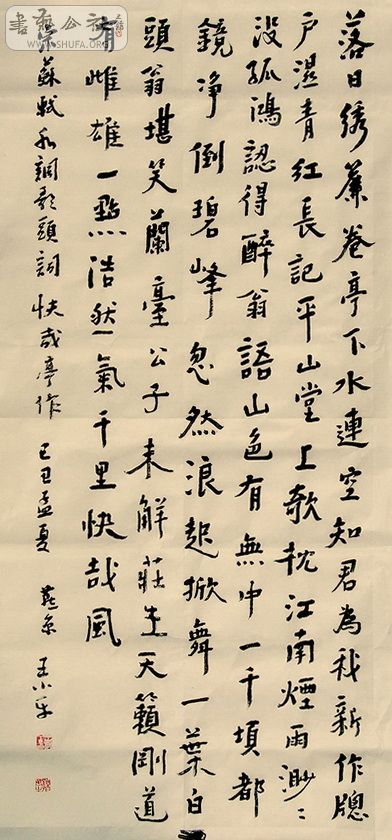 書法公社
WWW.SHUFA.ORG
落日绣簾卷亭下水連空知君為我新作牕
户濕青紅長記平山堂上欹枕江南煙雨渺〻
没孤鴻認得醉翁語山色有無中一千頃都
鏡净倒碧峰忽然浪起掀舞一葉白
頭翁堪笑蘭臺公子未解莊生天籟剛道
有雌雄一點浩然氣千里快哉風
宋蘇軾水調歌頭詞快哉亭作 己丑孟夏 燕京